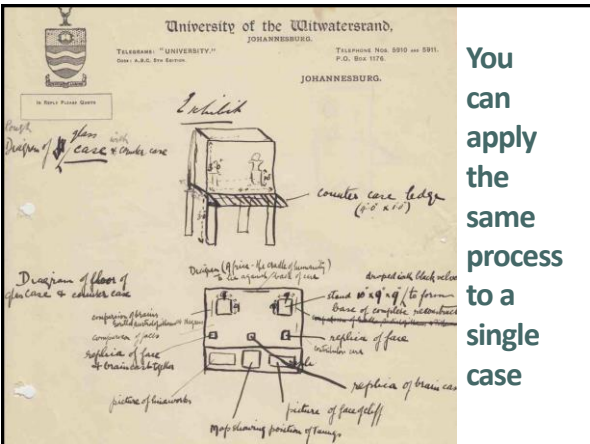 University of the Witwatersrand,
JOHANNESBURG.
TELEGRAMS: "UNIVERSITY."
CODE: A.B.C. 5TH EDITION.
TELEPHONE NOS. 5910 AND 5911.
P.O. BOX 1176.
JOHANNESBURG.
IN REPLY PLEASE QUOTE
Exhibit
Rough
Diagram of glass case with counter case
counter case ledge
Diagram of floor of
glass case & counter case
Diagram (Africa - the cradle of humanity)
to lie against back of case
draped in black velvet
stand 10" x 9" x 9" / to form
base of complete reconstruction
comparison of brains
replica of face
& braincast together
replica of face
replica of brain cast
picture of limeworks
picture of face of cliff
Map showing position of Taungs
You
can
apply
the
same
process
to a
single
case